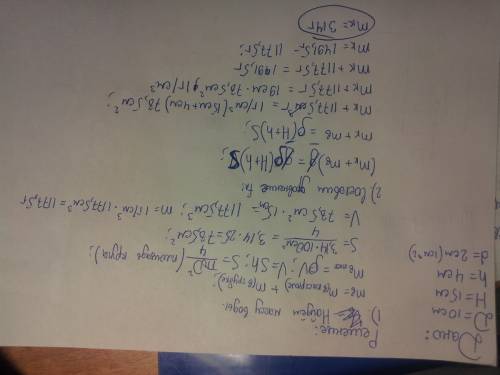 Дано:
D=10см
H=15см
h=4см
d=2см
Решение:
1) Найдём массу воды.
mв= m(в кастрюле) + m(в трубке);
mв = ρV; V=Sh; S= πD²/4 (площадь круга);
S= 3,14·100см²/4 = 3,14·25=78,5см²;
V= 78,5см²·15см= 1177,5см³; m= 1г/см³·1177,5см³=1177,5г
2) Составим уравнение
(mк + mв)g = ρg(H+h)S;
mк+mв = ρ(H+h)S;
mк+1177,5г = 1г/см³(15см+4см)78,5см²;
mк+1177,5г = 19см·78,5см²·1г/см³
mк+1177,5г = 1491,5г
mк= 1491,5г- 1177,5г;
mк= 314г